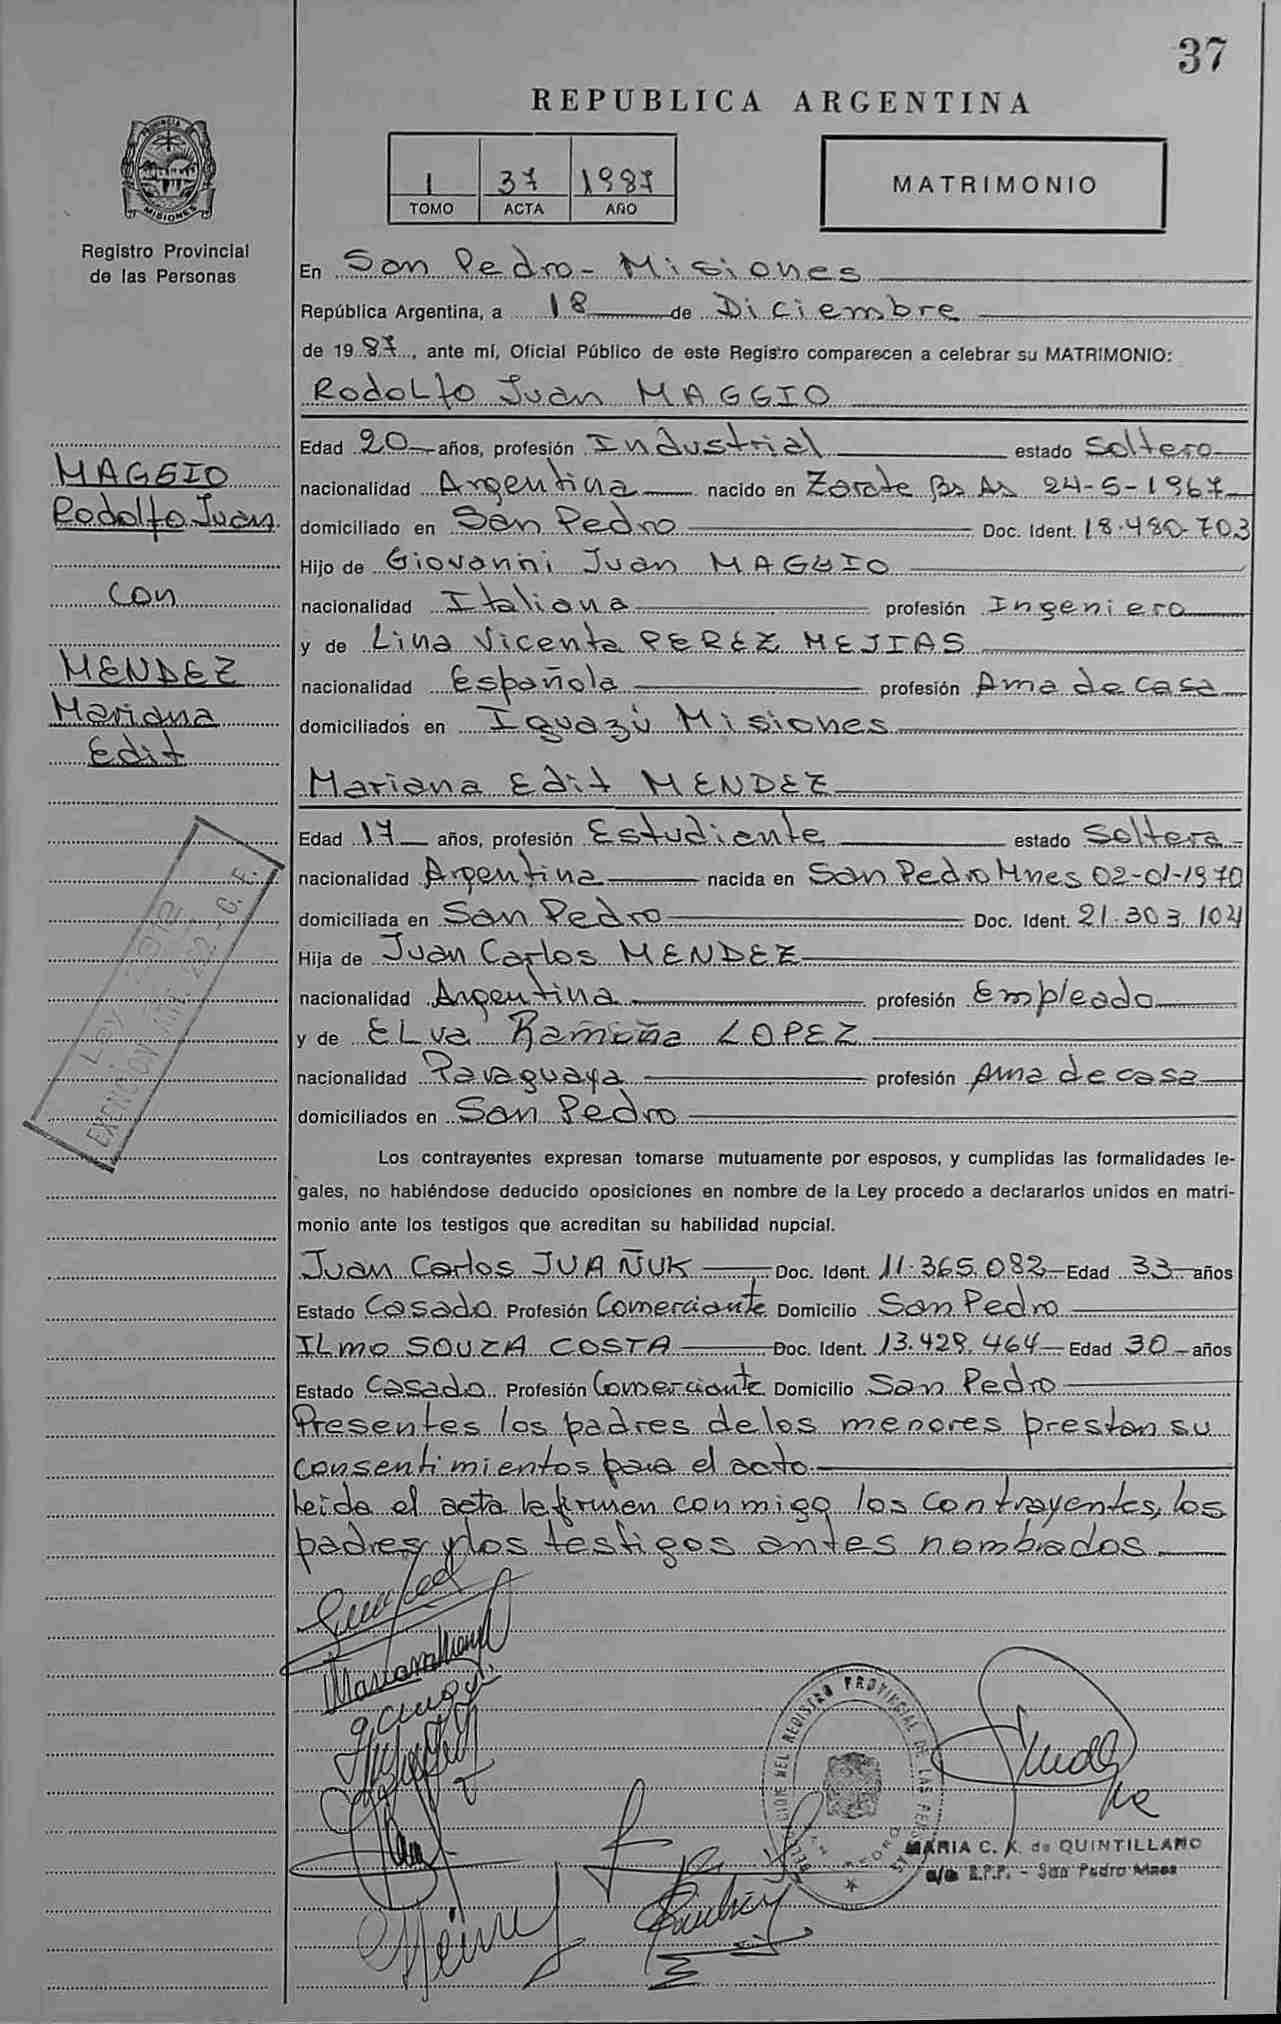 37
REPUBLICA ARGENTINA
PROVINCIA DE
MISIONES
Registro Provincial
de las Personas
1 37 1987
TOMO ACTA AÑO
MATRIMONIO
En San Pedro - Misiones
República Argentina, a 18 de Diciembre
de 1987, ante mí, Oficial Público de este Registro comparecen a celebrar su MATRIMONIO:
Rodolfo Juan MAGGIO
Edad 20 años, profesión Industrial estado Soltero
nacionalidad Argentina nacido en Zarate Bs As 24-5-1967
domiciliado en San Pedro Doc. Ident. 18.480.703
Hijo de Giovanni Juan MAGGIO
nacionalidad Italiana profesión Ingeniero
y de Lina Vicenta PEREZ MEJIAS
nacionalidad Española profesión Ama de casa
domiciliados en Iguazú Misiones
Mariana Edit MENDEZ
Edad 17 años, profesión Estudiante estado Soltera
nacionalidad Argentina nacida en San Pedro Mnes 02-01-1970
domiciliada en San Pedro Doc. Ident. 21.303.104
Hija de Juan Carlos MENDEZ
nacionalidad Argentina profesión Empleado
y de ELva Ramona LOPEZ
nacionalidad Paraguaya profesión Ama de casa
domiciliados en San Pedro
Los contrayentes expresan tomarse mutuamente por esposos, y cumplidas las formalidades le-
gales, no habiéndose deducido oposiciones en nombre de la Ley procedo a declararlos unidos en matri-
monio ante los testigos que acreditan su habilidad nupcial.
Juan Carlos JUAÑUK Doc. Ident. 11.365.082 Edad 33 años
Estado Casado Profesión Comerciante Domicilio San Pedro
ILmo SOUZA COSTA Doc. Ident. 13.429.464 Edad 30 años
Estado Casado Profesión Comerciante Domicilio San Pedro
Presentes los padres de los menores prestan su
consentimientos para el acto
Leida el acta la firman conmigo los contrayentes, los
padres y los testigos antes nombrados
MAGGIO
Rodolfo Juan
con
MENDEZ
Mariana
Edit
EXENCION ART. 222 C. F.
DEL REGISTRO PROVINCIAL DE LAS
MARIA C. K. de QUINTILLANO
a/c R.P.P. - San Pedro Mnes